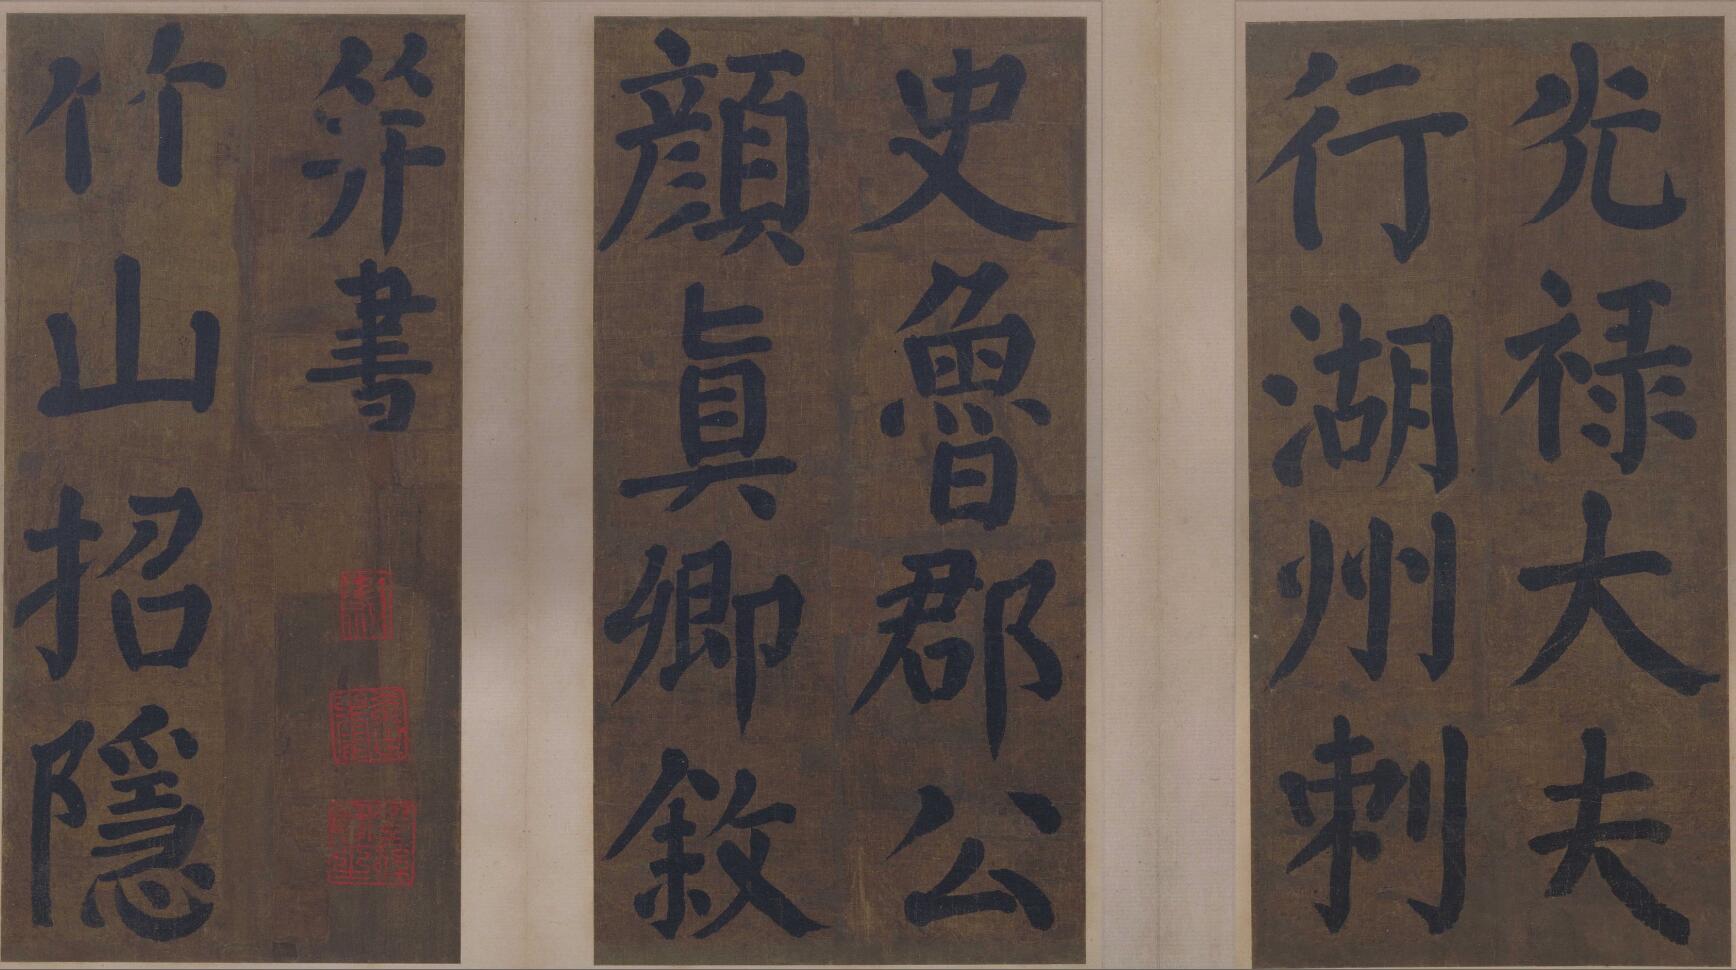 光禄大夫
行湖州刺
史魯郡公
顏眞卿敘
笄書
竹山招隱